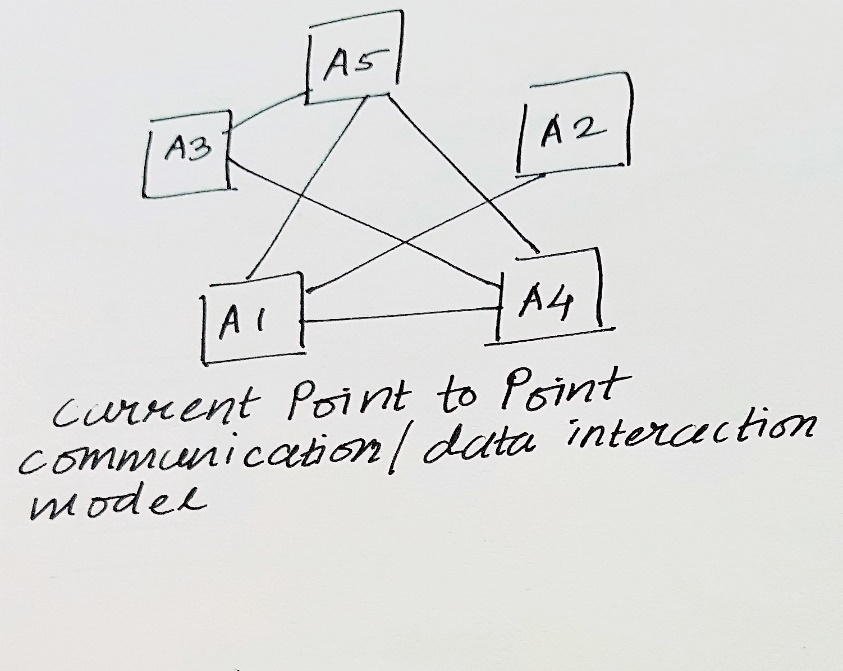 A5
A3
A2
A1
A4
Current Point to Point
communication/ data interaction
model